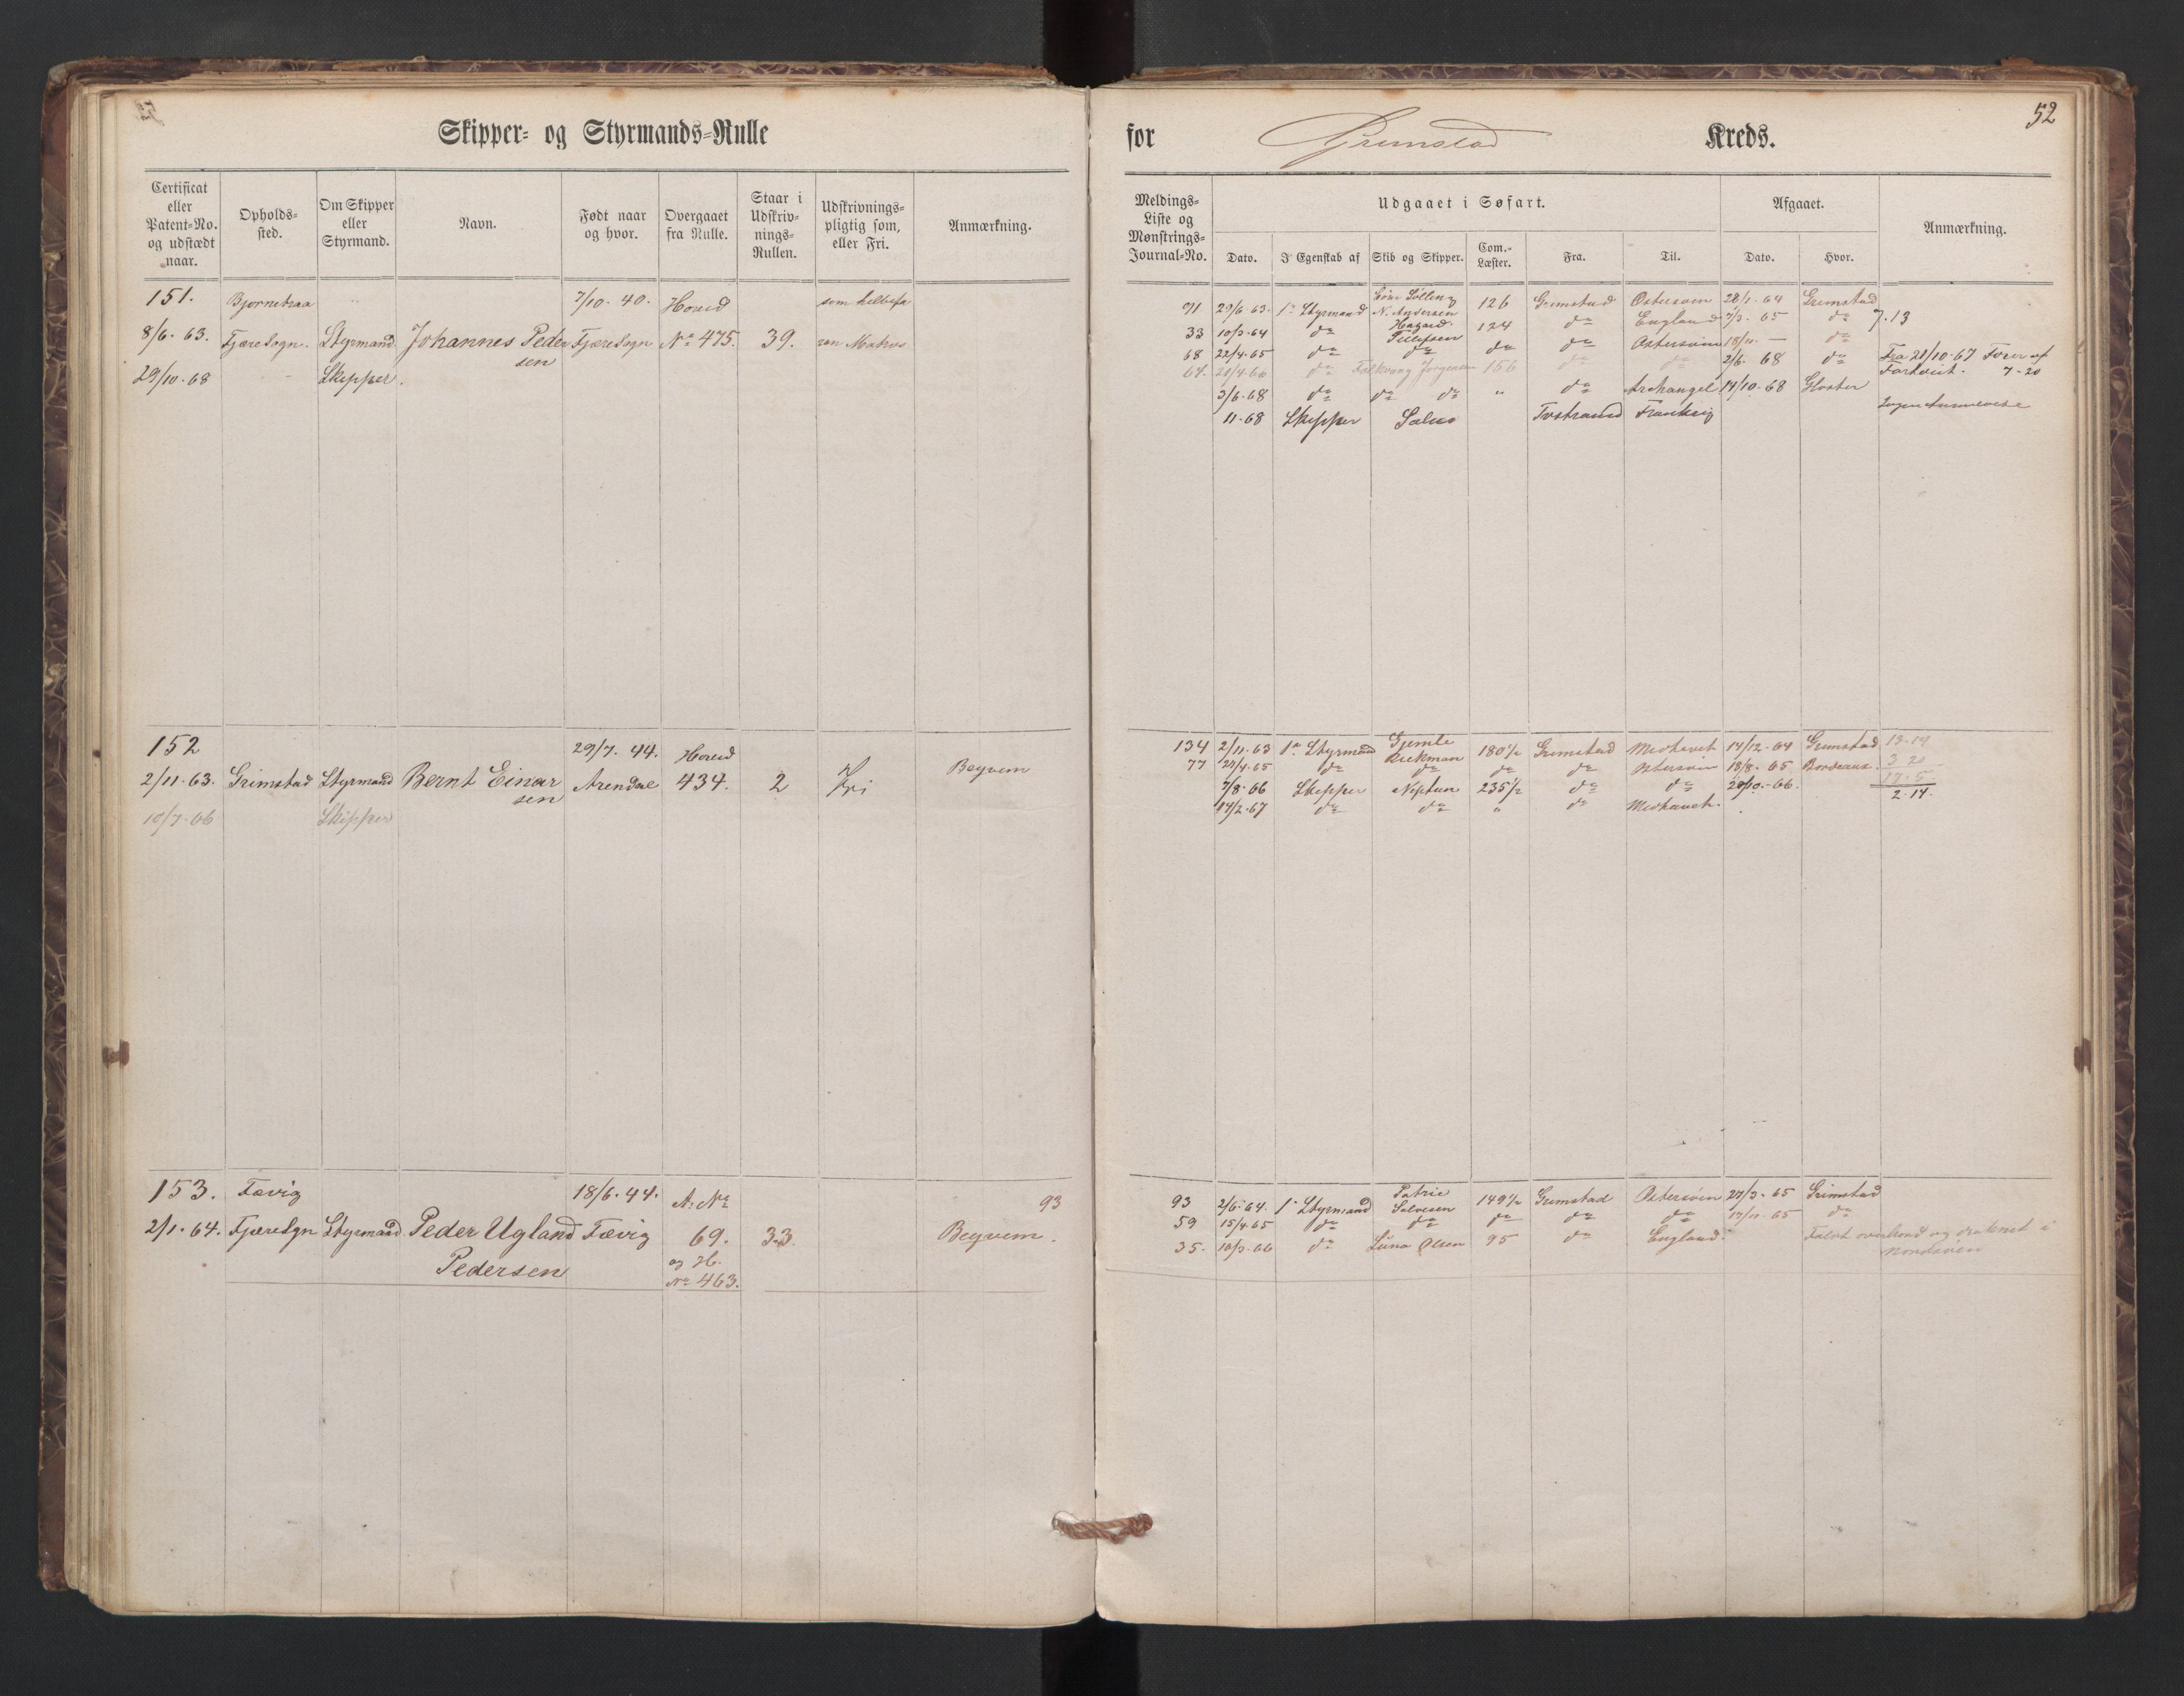 Skipper- og Styrmands-Rulle
for Grimstad Kreds.
52
Certificat eller Patent-No. og udstædt naar.
Opholds-sted.
Om Skipper eller Styrmand.
Navn.
Født naar og hvor.
Overgaaet fra Rulle.
Staar i Udskriv-nings-Rullen.
Udskrivnings-pligtig som, eller Fri.
Anmærkning.
Meldings-Liste og Mønstrings-Journal-No.
Udgaaet i Søfart.
Dato. I Egenskab af Skib og Skipper. Com.-Læster. Fra. Til.
Afgaaet.
Dato. Hvor.
Anmærkning.
151. 7/10. 40. Hoved
8/6. 63. Fjære Sogn. Styrmand Johannes Peder Fjære Sogn No 475. 39. Matros
sen
29/10. 68 Skipper.
91 29/6 63. 1e Styrmand N. Andersen 126 Grimstad Østersøen 28/1. 64 Grimstad
33 10/3. 64 do Tellefsen 124 do England 7/3. 65 do 7.13
68 22/4. 65 do do do do Østersøen 18/11. — do
64. 21/4. 66 do Falkvang Jørgensen 156 do do 2/6. 68 do Fra 21/10. 67 Fører af
Fartøiet. 7-20
3/6. 68 do do do " do Archangel 14/10. 68 Gloster
11. 68 Skipper Frankrig
152 29/7. 44. Hoved
2/11. 63. Grimstad Styrmand Bernt Einar Arendal 434. 2 Fri Begvem
sen
10/7. 66 Skipper
134 2/11. 63 1e Styrmand Gjemle 180 1/2 Grimstad Medhavet 14/12. 64 Grimstad 13-14
77 21/4. 65 do do do do Østersøen 18/8. 65 Bordeaux. 3 20
7/8. 66 Skipper Neptun 235 1/2 do do 20/10. 66. 17-5
14/2. 67 do do " do Medhavet. 2-14.
153. Fævig 18/6. 44. A. No 93
2/1. 64. Fjære Sgn Styrmand Peder Ugland Fævig 69. 33. Begvem.
Pedersen og H.
No 463.
93 2/6. 64. 1e Styrmand Patrie Salvesen 149 1/2 Grimstad Østersøen 27/3. 65 Grimstad
59 15/4. 65 do do do do do 17/11. 65 do
35. 10/3. 66 do Luna Olsen 95 do England. Faldt overbord og druknet i
Nordsøen